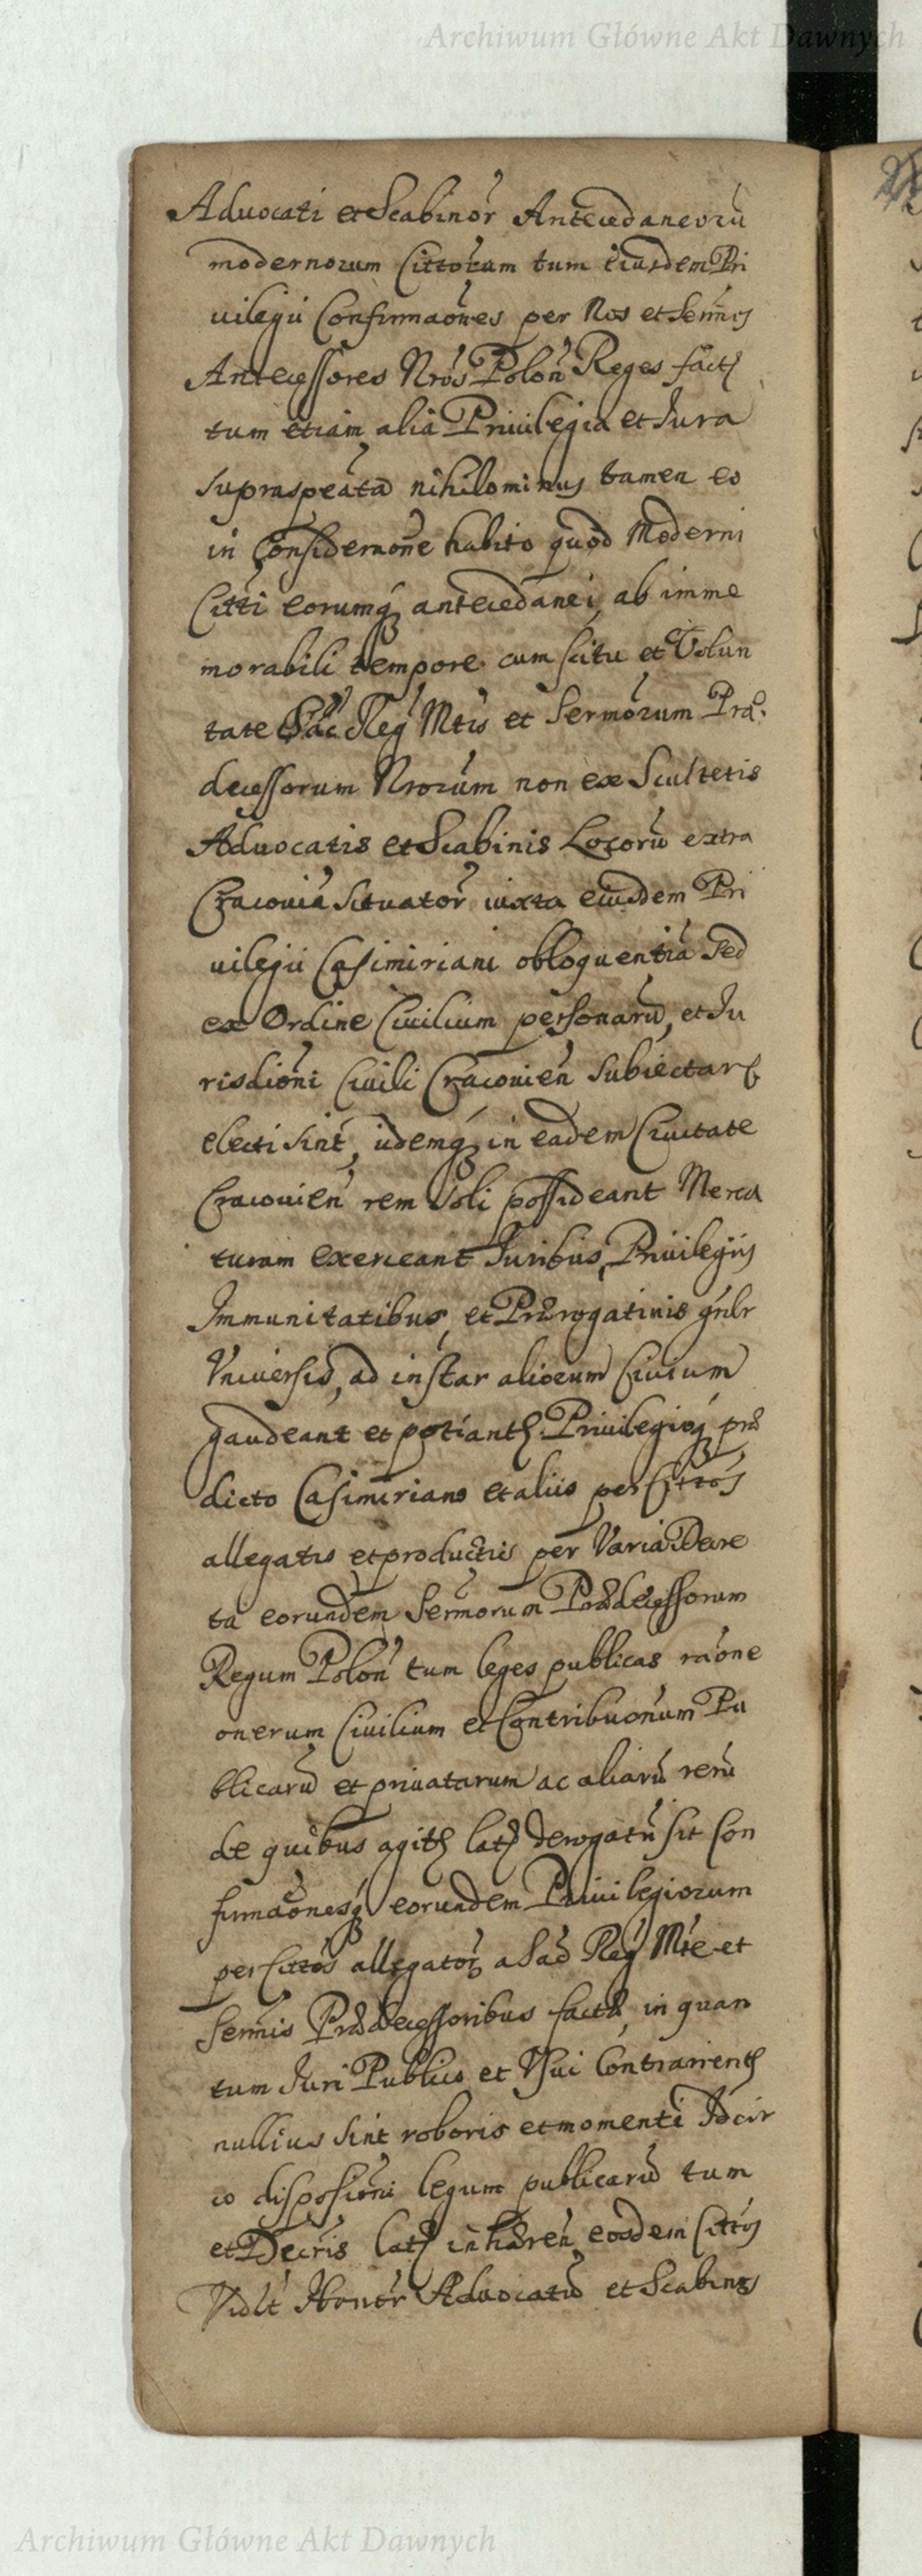 Archiwum Główne Akt Dawnych
Advocati et Scabinor Antecedaneorū
modernorum Cittorum tum eiusdem Pri
vilegii Confirmaones per Nos et Sermos
Antecessores Nros Polon Reges fact
tum etiam alia Privilegia et Jura
supraspecata nihilominus tamen eo
in Consideraone habito quod Moderni
Citti eorumq antecedanei, ab imme
morabili tempore cum scitu et Volun
tate Sac Reg Mtis et Sermorum Præ
decessorum Nrorum non ex Scultetis
Advocatis et Scabinis Locorū extra
Cracoviā situator iuxta eiusdem Pri
vilegii Casimiriani obloquentiā sed
ex Ordine Civilium personarū, et Ju
risdioni Civili Cracovien subiectar
electi sint, iidemq in eadem Civitate
Cracovien rem soli possideant Merca
turam exerceant Juribus, Privilegiis
Immunitatibus, et Prærogativis gnlr
Vniversis, ad instar aliorum Civium
gaudeant et potiant Privilegioq præ
dicto Casimiriano et aliis per Cittos
allegatis et productis per Varia Decre
ta eorundem Sermorum Prædecessorum
Regum Polon tum leges publicas raone
onerum Civilium et Contribuonum Pu
blicarū et privatarum ac aliarū rerū
de quibus agit lat derogatū sit Con
firmaonesq eorundem Privilegiorum
per Cittos allegator a Sac Reg Mte et
Sermis Prædecessoribus fact, in quan
tum Juri Publico et Vsui Contrarient
nullius sint roboris et momenti Idcir
co disposioni legum publicarū tum
et Decris lat inhæren eosdem Cittos
Vidlt Honor Advocatū et Scabinos
Archiwum Główne Akt Dawnych